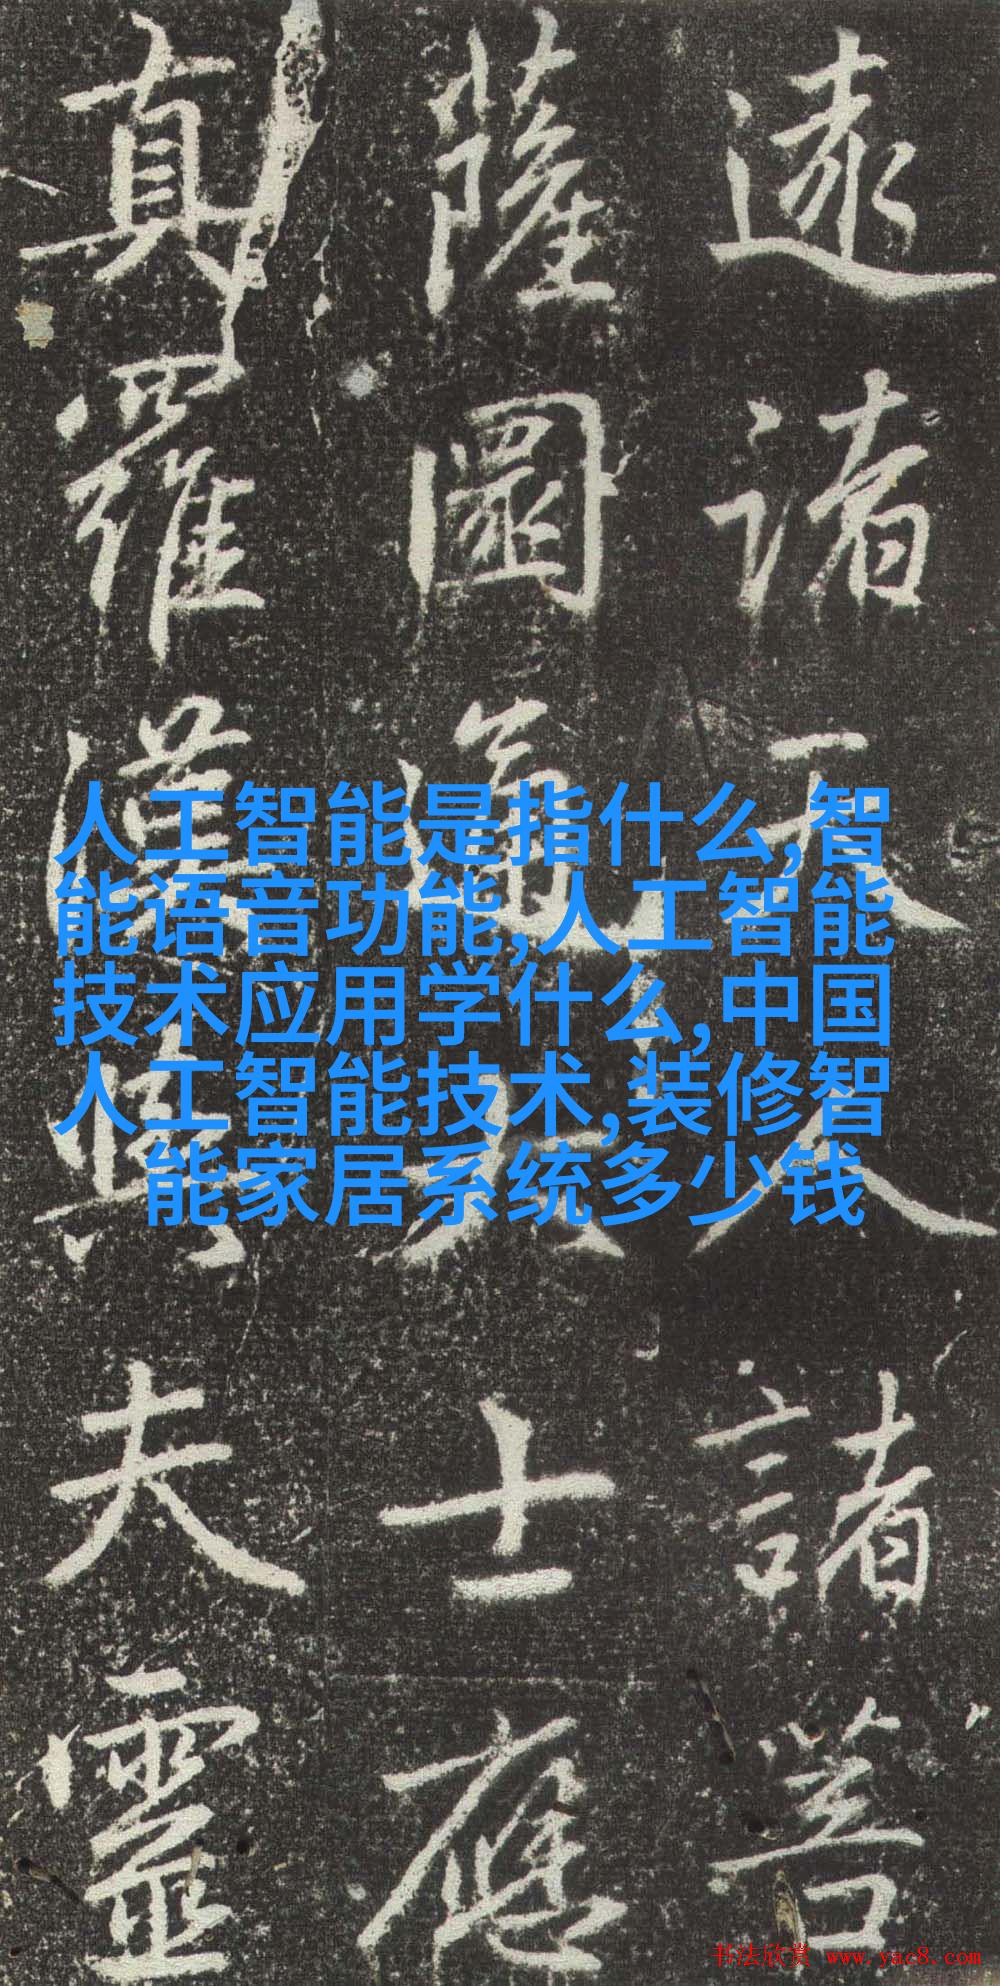 遠诸天人諸菩
薩圓通大士應
真羅漢與夫靈
人工智能是指什么,智
能语音功能,人工智能
技术应用学什么,中国
人工智能技术,装修智
能家居系统多少钱
书法欣赏 www.yac8.com